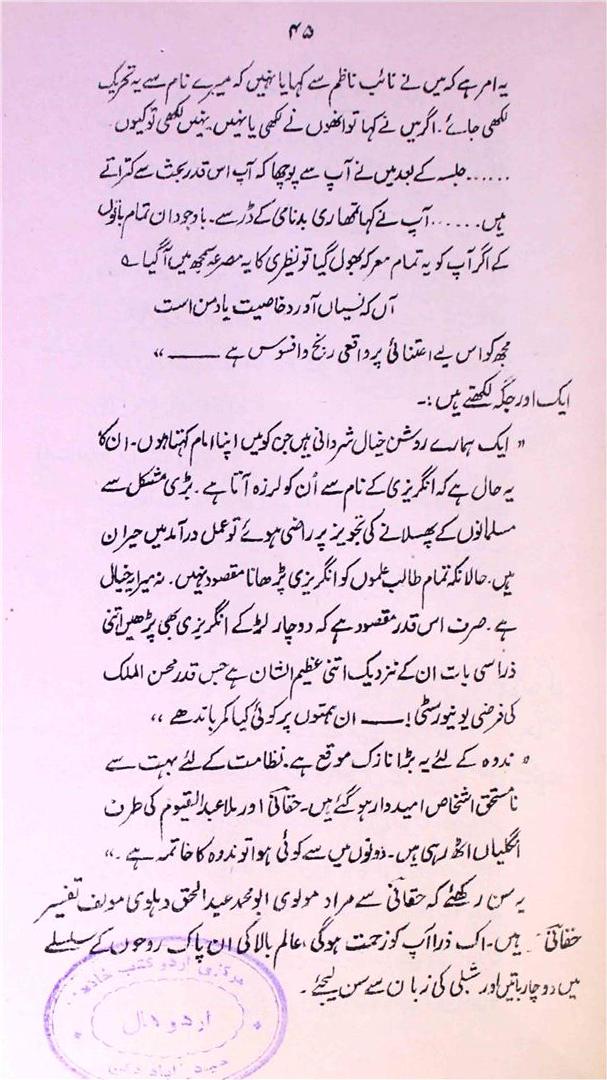 ۴۵
یہ امر ہے کہ میں نے نائب ناظم سے کہا یا نہیں کہ میرے نام سے یہ تحریک
لکھی جائے۔ اگر میں نے کہا تو انھوں نے لکھی یا نہیں۔ نہیں لکھی تو کیوں۔
......جلسہ کے بعد میں نے آپ سے پوچھا کہ آپ اس قدر بحث سے کتراتے
ہیں......آپ نے کہا تمھاری بدنامی کے ڈر سے۔ باوجود ان تمام باتوں
کے اگر آپ کو یہ تمام معرکہ بھول گیا تو نظری کا یہ مصرعہ سمجھ میں آ گیا ؎
آں کہ نسیاں آورد خاصیت یاد من است
مجھ کو اس بے اعتنائی پر واقعی رنج و افسوس ہے ـــــــ ،،
ایک اور جگہ لکھتے ہیں :۔
" ایک ہمارے روشن خیال شردانی ہیں جن کو میں اپنا امام کہتا ہوں۔ ان کا
یہ حال ہے کہ انگریزی کے نام سے اُن کو لرزہ آتا ہے۔ بڑی مشکل سے
مسلمانوں کے پھسلانے کی تجویز پر راضی ہوئے تو عمل درآمد میں حیران
ہیں۔ حالانکہ تمام طالب علموں کو انگریزی پڑھانا مقصود نہیں۔ نہ میرا یہ خیال
ہے۔ صرف اس قدر مقصود ہے کہ دو چار لڑکے انگریزی بھی پڑھیں اتنی
ذرا سی بات ان کے نزدیک اتنی عظیم الشان ہے جس قدر محسن الملک
کی فرضی یونیورسٹی! ـــــ ان ہمتوں پر کوئی کیا کمر باندھے ،،
" ندوہ کے لئے یہ بڑا نازک موقع ہے۔ نظامت کے لئے بہت سے
نامستحق اشخاص امیدوار ہو گئے ہیں۔ حقانی اور ملا عبدالقیوم کی طرف
انگلیاں اٹھ رہی ہیں۔ دونوں میں سے کوئی ہوا تو ندوہ کا خاتمہ ہے۔،،
یہ سن رکھئے کہ حقانی سے مراد مولوی ابو محمد عبدالحق دہلوی مولف تفسیر
حقانی ہیں۔ اک ذرا آپ کو زحمت ہوگی، عالم بالا کی ان پاک روحوں کے سلسلے
میں دو چار باتیں اور شبلی کی زبان سے سن لیجئے۔
مرکزی اردو کتب خانہ
اردو ہال
حیدرآباد دکن